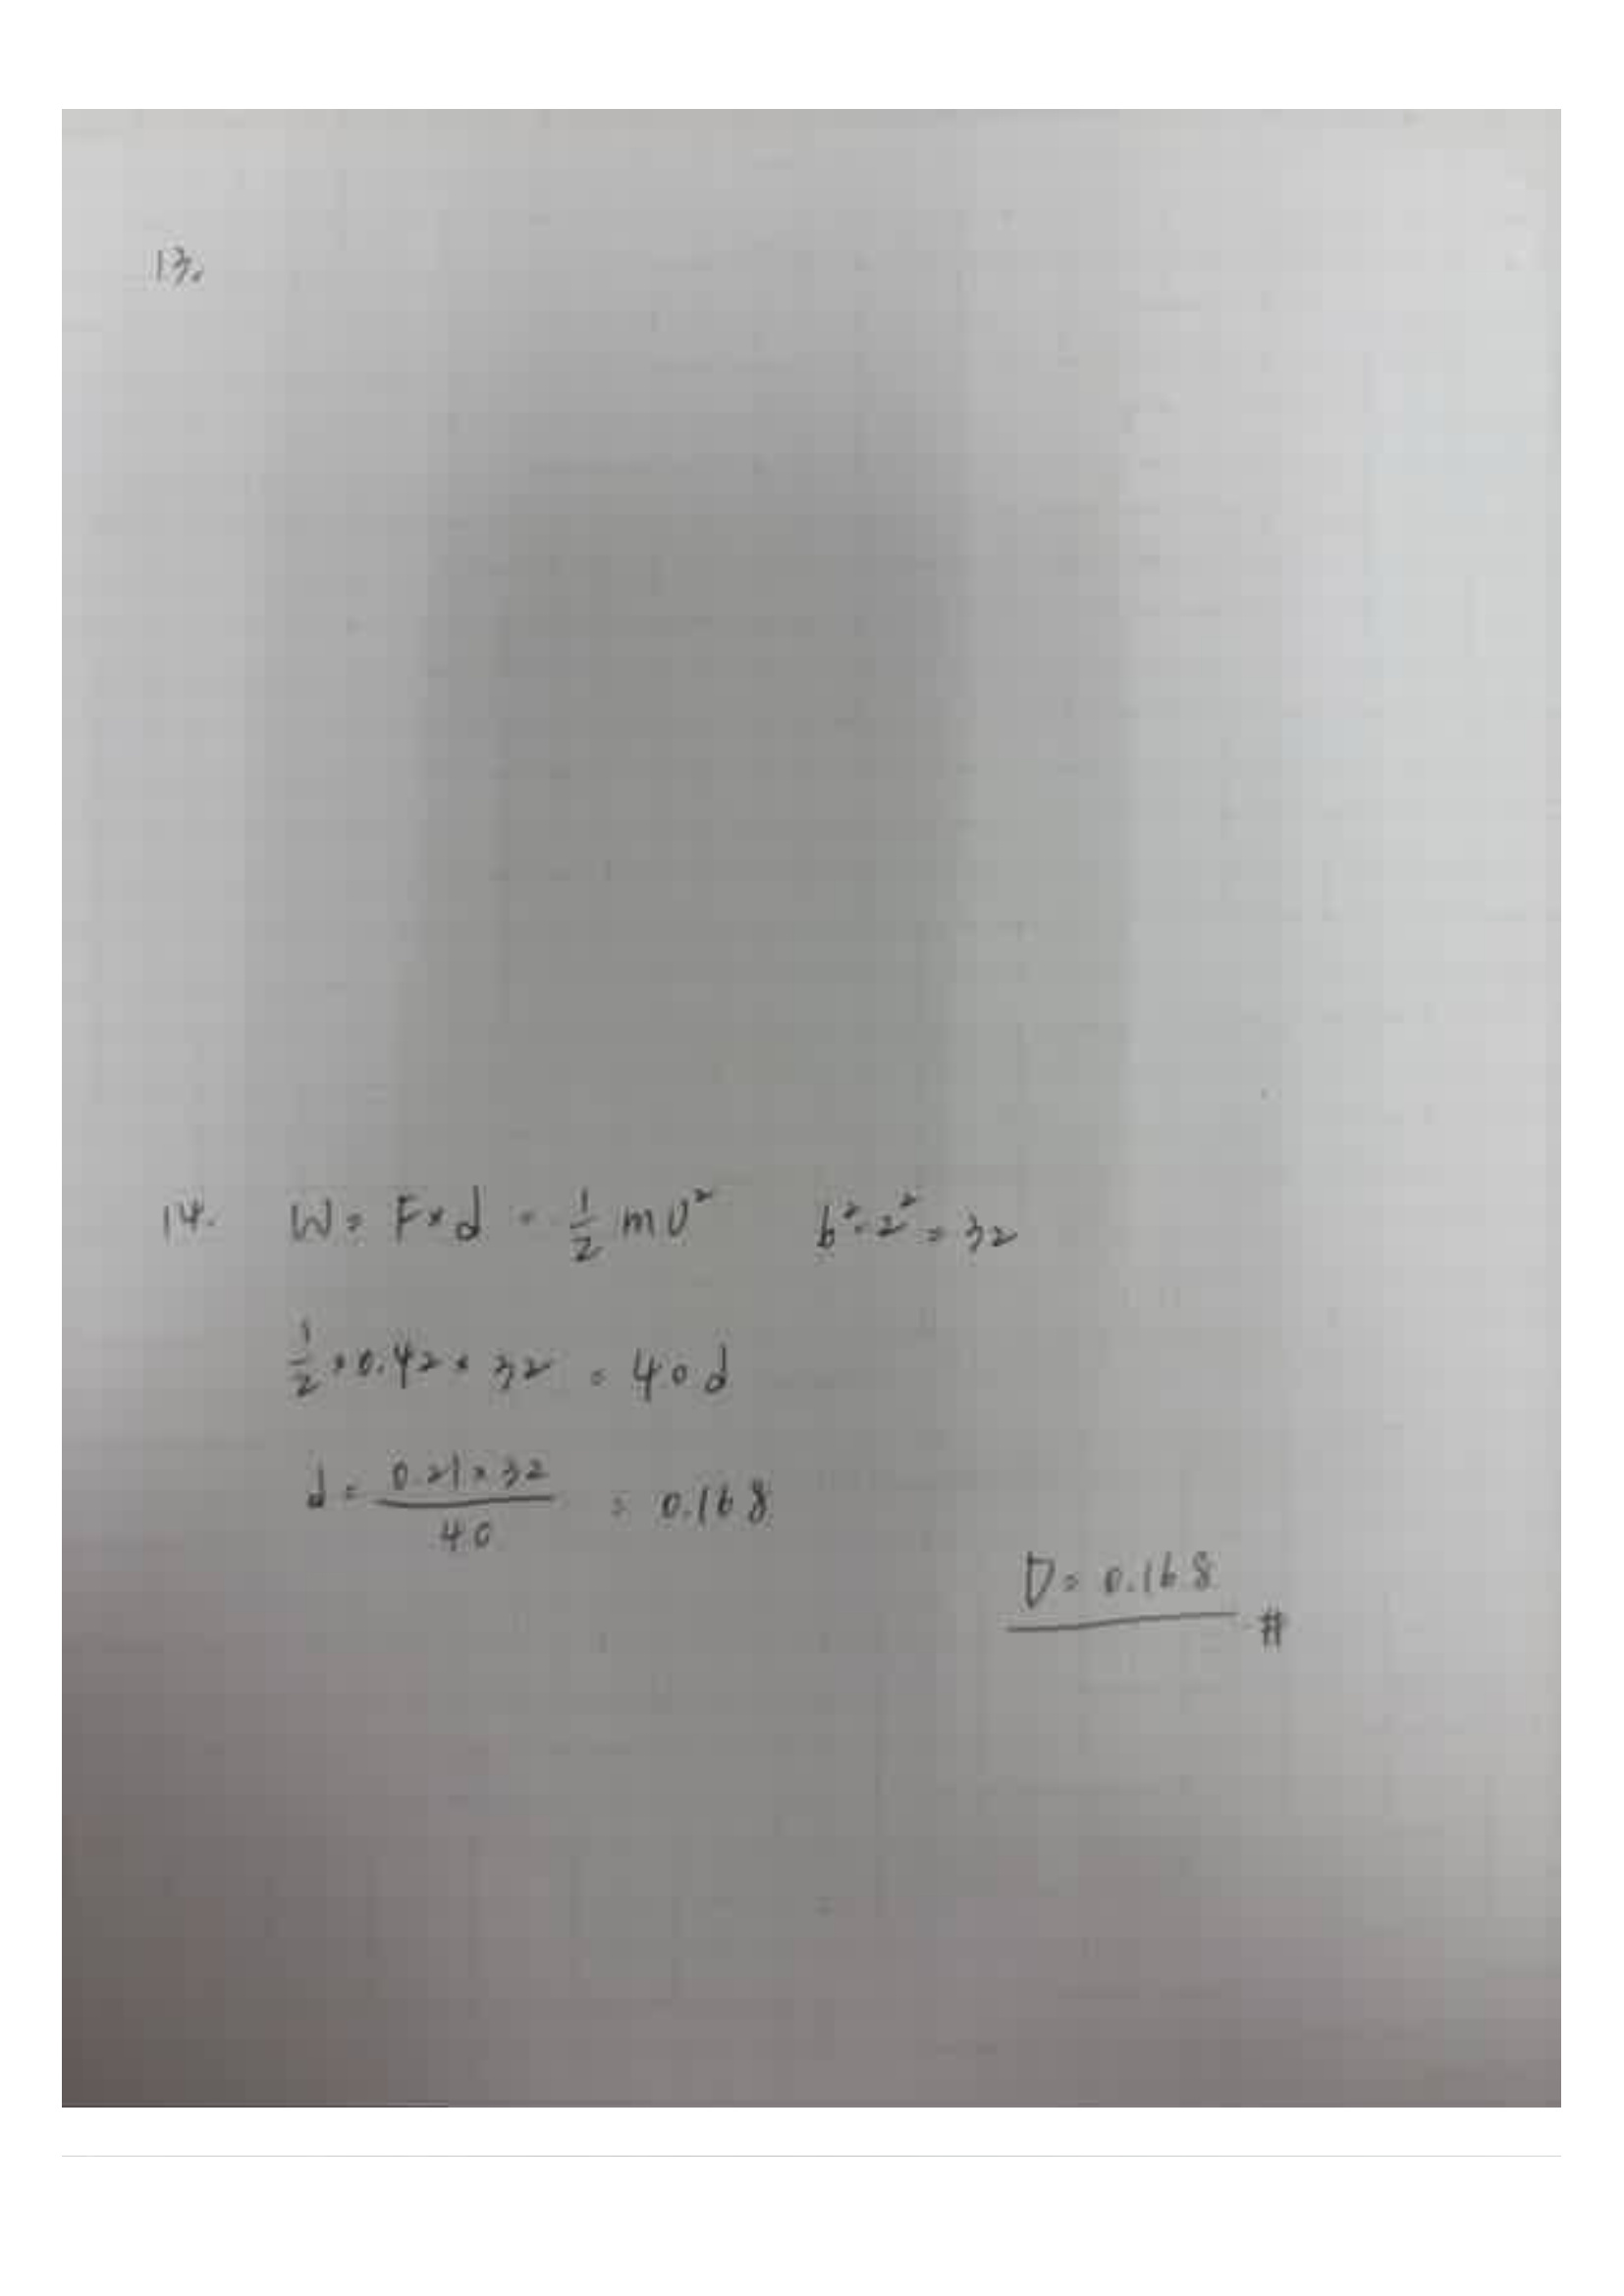 13.
14. W = F × d = 1/2 mv² 6² - 2² = 32
1/2 × 0.42 × 32 = 40d
d = 0.21 × 32 / 40 = 0.168
D = 0.168 #